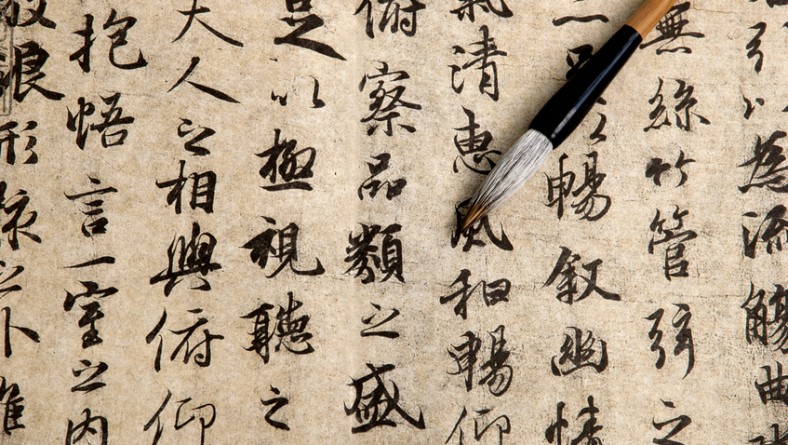 引以為流觴曲水
無絲竹管弦之
足以暢叙幽情
氣清惠風和暢仰
俯察品類之盛
足以極視聽之
夫人之相與俯仰
抱悟言一室之内
放浪形骸之外雖